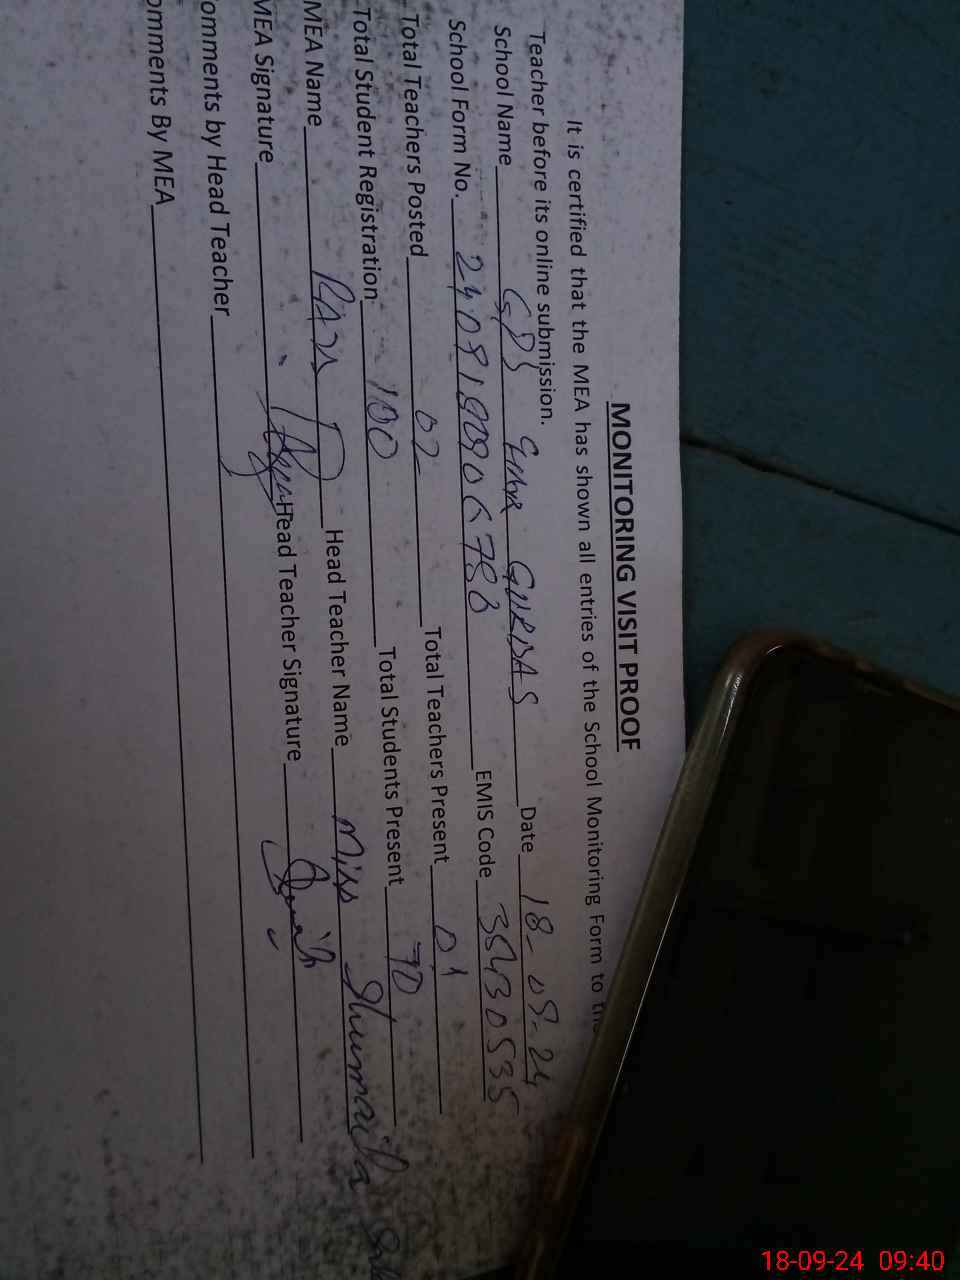 MONITORING VISIT PROOF
It is certified that the MEA has shown all entries of the School Monitoring Form to the
Teacher before its online submission.
School Name GPS GURDAS Date 18-09-24
School Form No. EMIS Code 35430535
Total Teachers Posted 02 Total Teachers Present 01
Total Student Registration 100 Total Students Present 70
MEA Name Head Teacher Name Miss Shumaila
MEA Signature Head Teacher Signature
omments by Head Teacher
omments By MEA
18-09-24 09:40